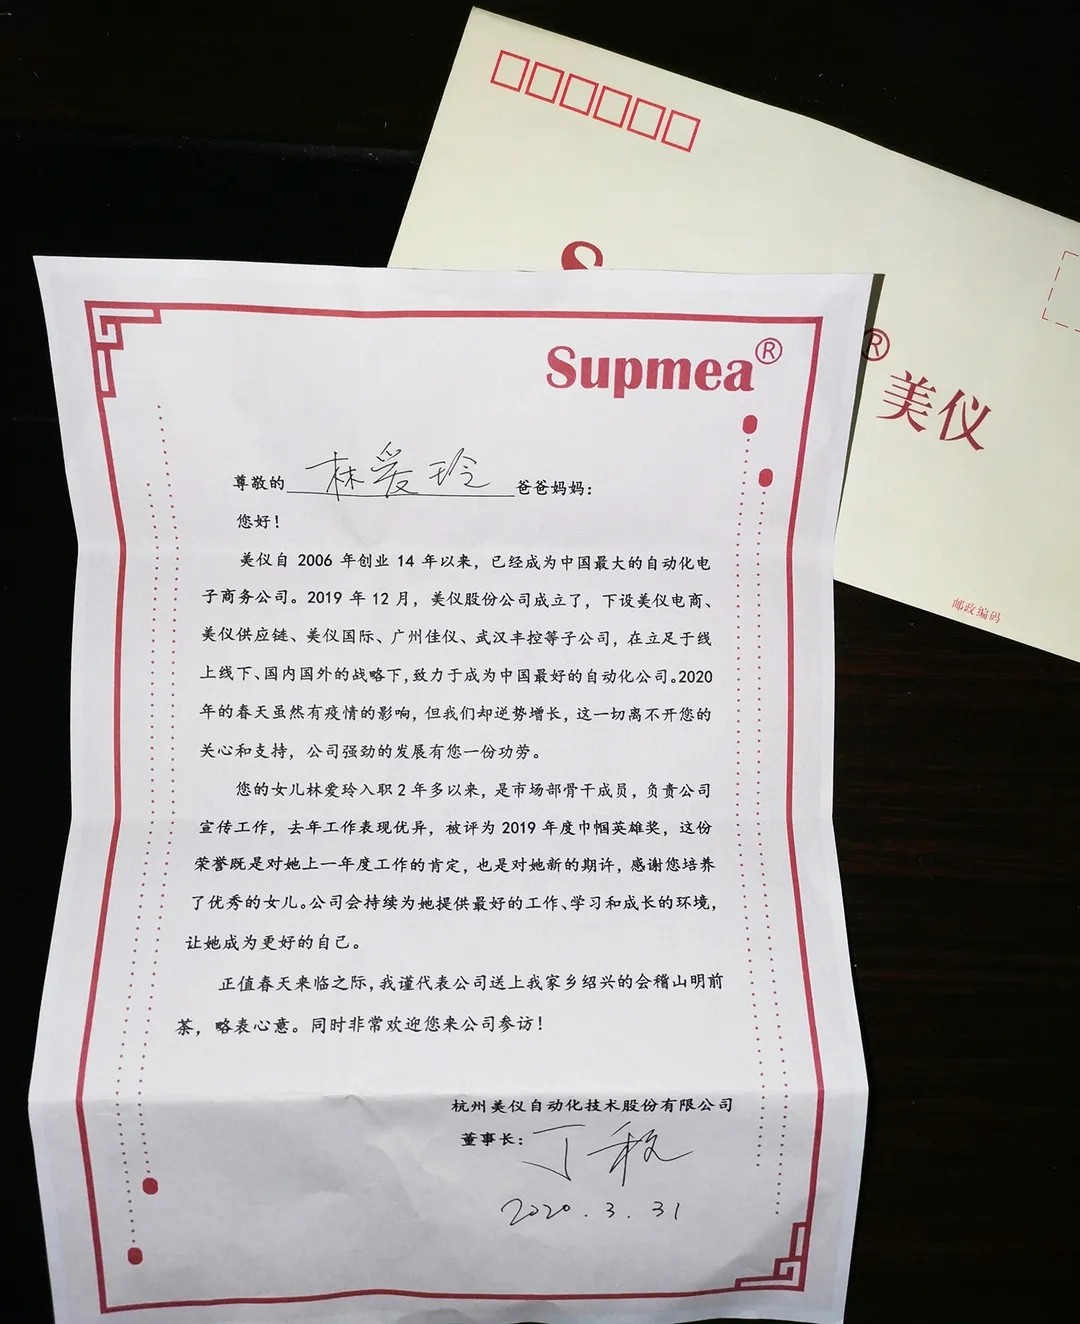 Supmea®
尊敬的 林爱玲 爸爸妈妈：
您好！
美仪自 2006 年创业 14 年以来，已经成为中国最大的自动化电
子商务公司。2019 年 12 月，美仪股份公司成立了，下设美仪电商、
美仪供应链、美仪国际、广州佳仪、武汉丰控等子公司，在立足于线
上线下、国内国外的战略下，致力于成为中国最好的自动化公司。2020
年的春天虽然有疫情的影响，但我们却逆势增长，这一切离不开您的
关心和支持，公司强劲的发展有您一份功劳。
您的女儿林爱玲入职 2 年多以来，是市场部骨干成员，负责公司
宣传工作，去年工作表现优异，被评为 2019 年度巾帼英雄奖，这份
荣誉既是对她上一年度工作的肯定，也是对她新的期许，感谢您培养
了优秀的女儿。公司会持续为她提供最好的工作、学习和成长的环境，
让她成为更好的自己。
正值春天来临之际，我谨代表公司送上我家乡绍兴的会稽山明前
茶，略表心意。同时非常欢迎您来公司参访！
杭州美仪自动化技术股份有限公司
董事长：
2020.3.31
S
® 美仪
邮政编码